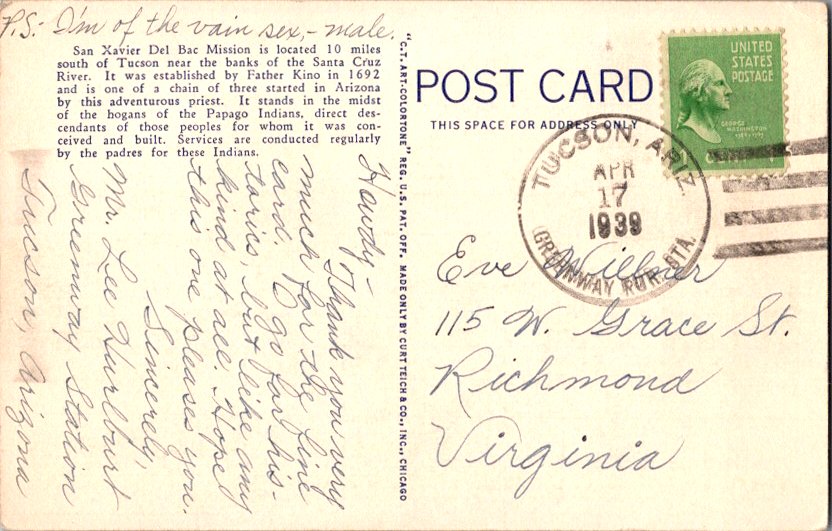 P.S.- I'm of the vain sex,- male.
San Xavier Del Bac Mission is located 10 miles
south of Tucson near the banks of the Santa Cruz
River. It was established by Father Kino in 1692
and is one of a chain of three started in Arizona
by this adventurous priest. It stands in the midst
of the hogans of the Papago Indians, direct des-
cendants of those peoples for whom it was con-
ceived and built. Services are conducted regularly
by the padres for these Indians.
Howdy-
Thank you very
much for the fine
card. I go for his-
torics, but like any
kind at all. Hope
this one pleases you.
Sincerely,
Mr. Lee Hurlburt
Greenway Station
Tucson, Arizona
"C.T. ART-COLORTONE" REG. U.S. PAT. OFF. MADE ONLY BY CURT TEICH & CO., INC., CHICAGO
POST CARD
THIS SPACE FOR ADDRESS ONLY
UNITED
STATES
POSTAGE
GEORGE
WASHINGTON
TUCSON, ARIZ.
APR
17
1939
(GREENWAY RUR. STA.
Eve Willner
115 W. Grace St.
Richmond
Virginia